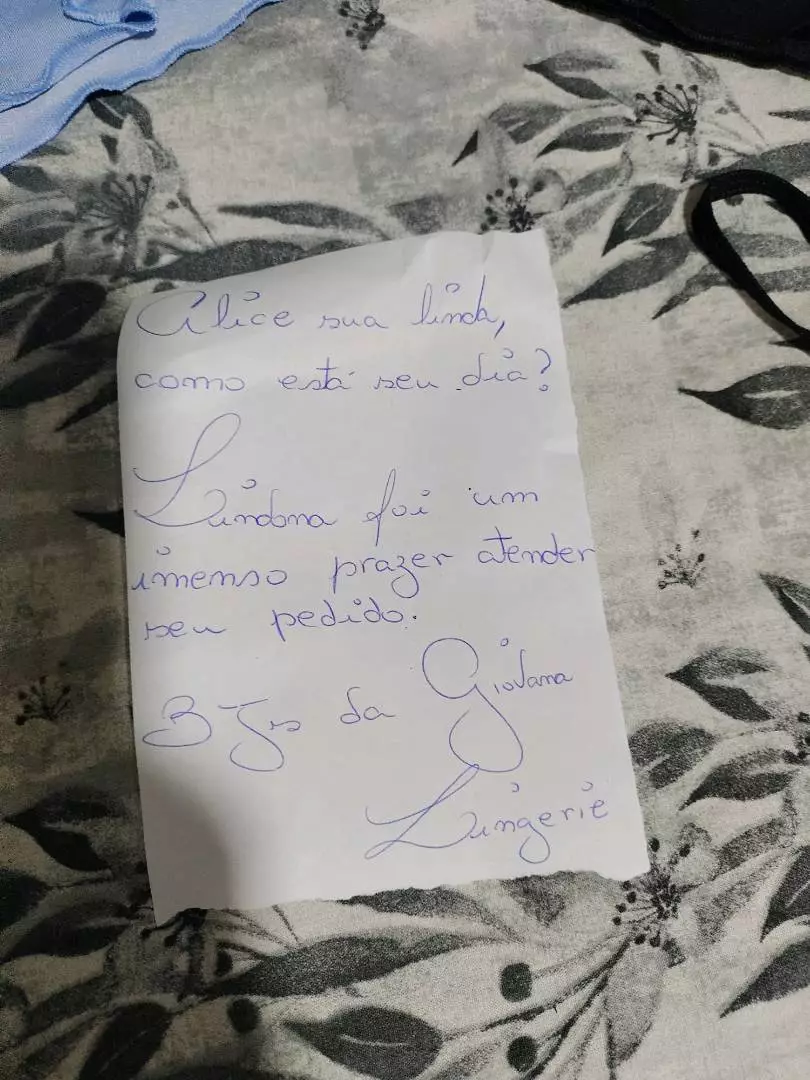 Alice sua linda,
como está seu dia?
Lindona foi um
imenso prazer atender
seu pedido.
Bjs da Giovana
Lingerie